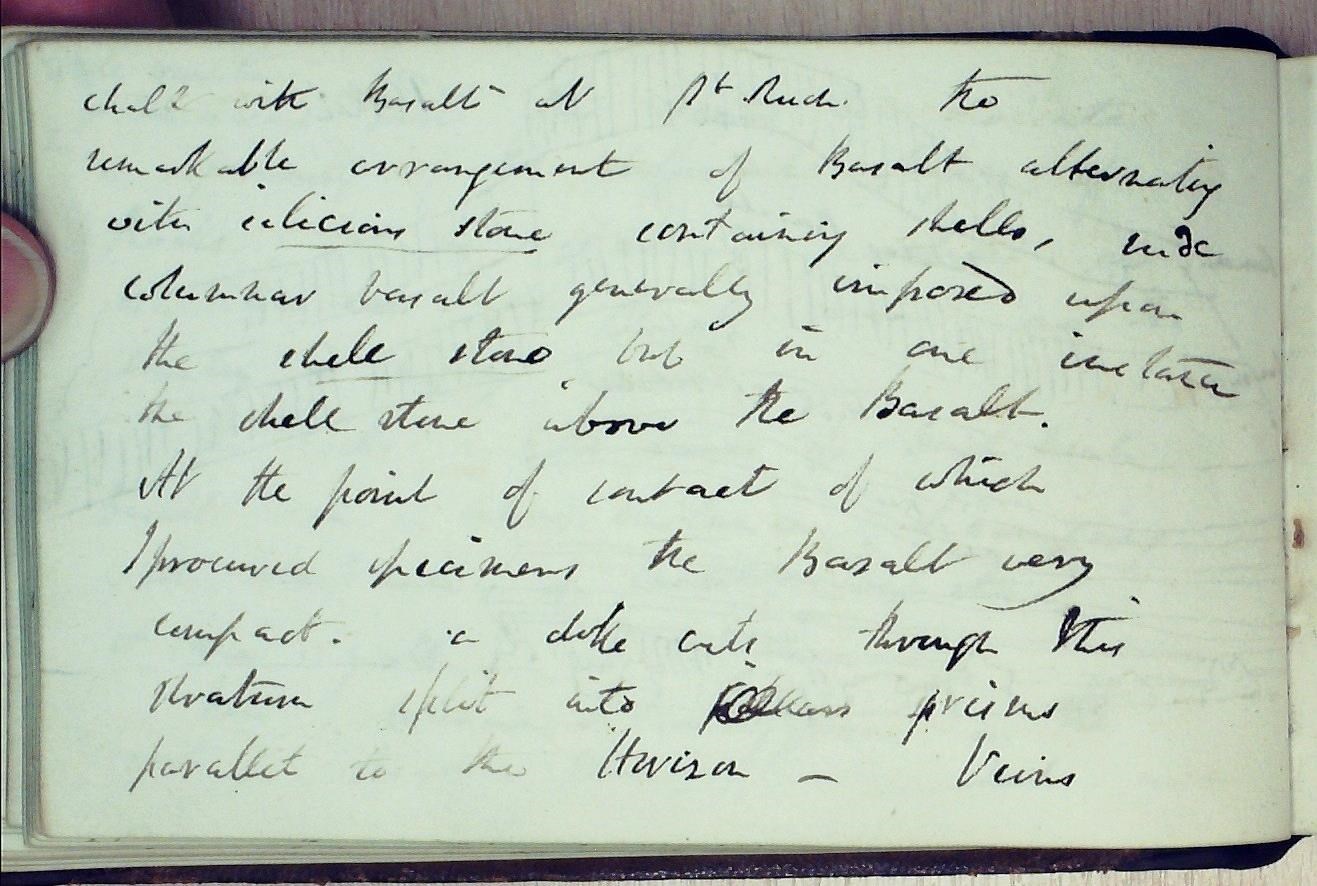 chalk with Basalt at Pt. Ruch. the
remarkable arrangement of Basalt alternating
with silicious stone containing shells,
columnar basalt generally imposed upon
the shell stone but in one instance
the shell stone above the Basalt.
At the point of contact of which
I procured specimens the Basalt very
compact. a dike cuts through this
stratum split into prisms
parallel to the Horison — Veins